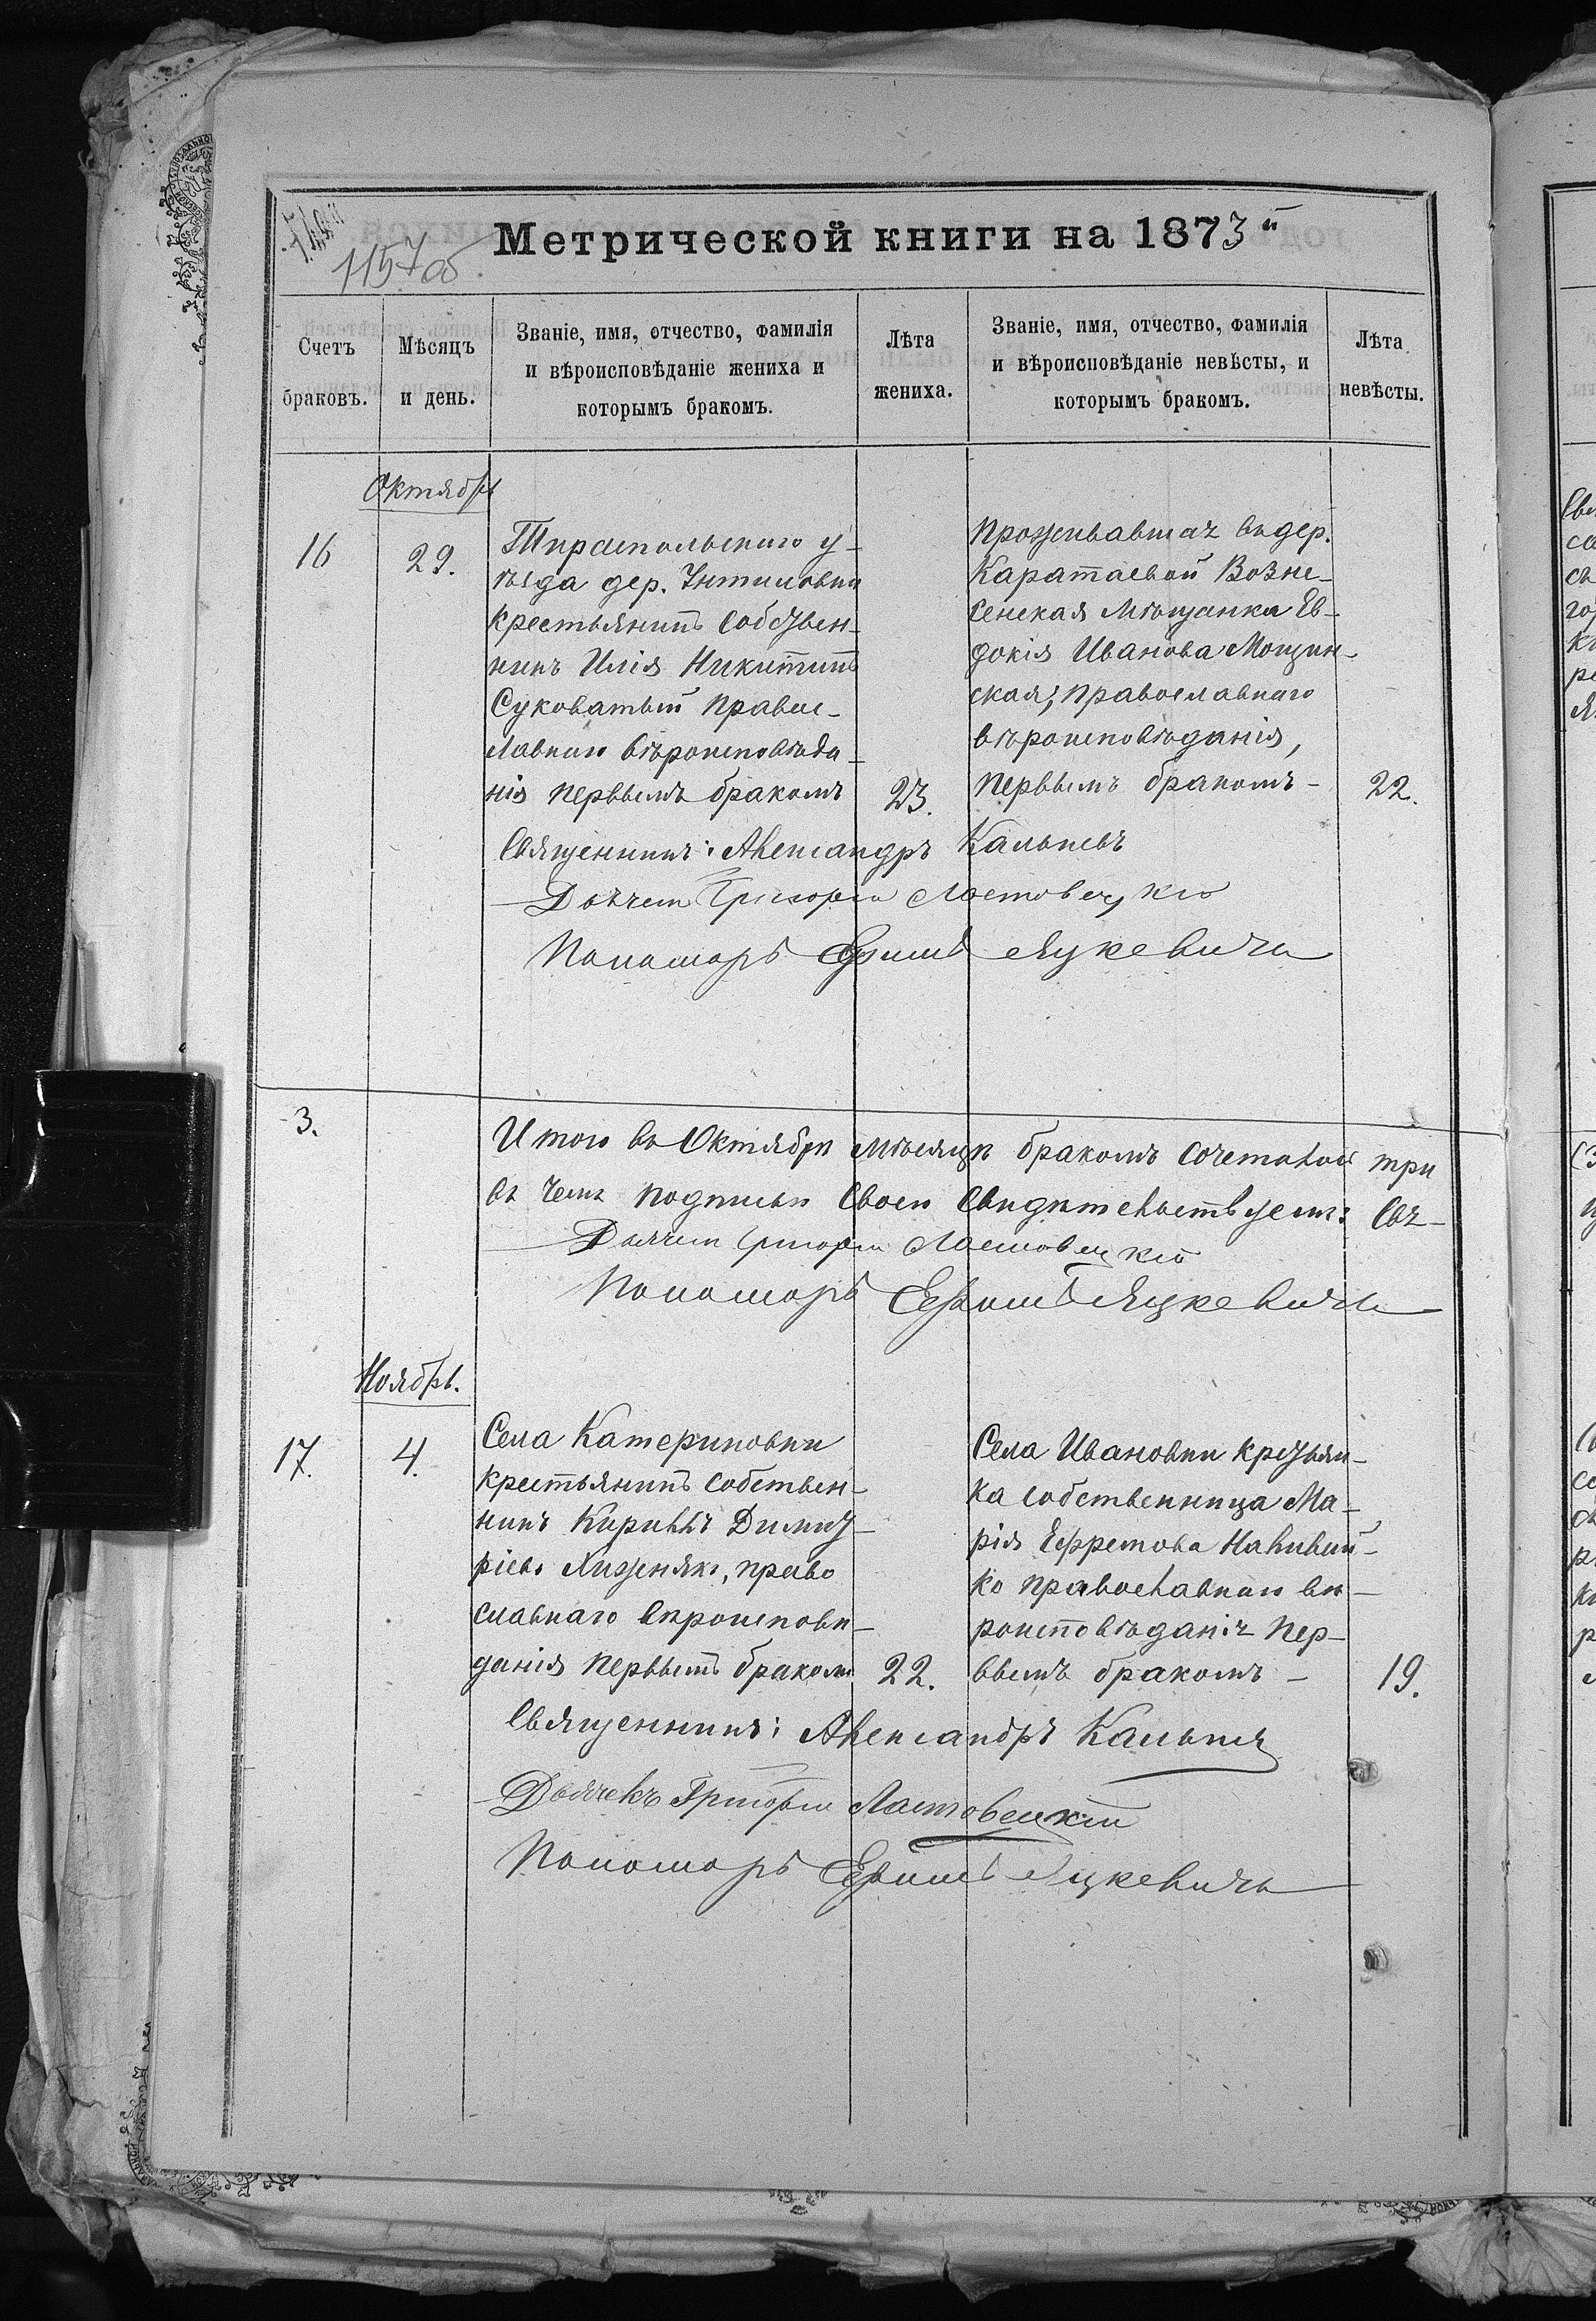 1157об
Метрической книги на 1873й
Счетъ
браковъ.
Мѣсяцъ
и день.
Званіе, имя, отчество, фамилія
и вѣроисповѣданіе жениха и
которымъ бракомъ.
Лѣта
жениха.
Званіе, имя, отчество, фамилія
и вѣроисповѣданіе невѣсты, и
которымъ бракомъ.
Лѣта
невѣсты.
Октябрь
16
29.
Тираспольскаго у-
ѣзда дер.
крестьянинъ собствен-
никъ Илія Никитинъ
Суковатый правос-
лавнаго вѣроисповѣда-
нія первымъ бракомъ
23.
Проживавшая въ дер.
Каратаевой Возне-
сенская Мѣщанка Ев-
докія Иванова Мощин-
ская, православнаго
вѣроисповѣданія,
первымъ бракомъ -
22.
Священникъ: Александръ Кальневъ
Дьячекъ Григорій Ластовецкій
Пономарь Ефимъ Яцкевичъ
3.
Итого въ Октябрѣ мѣсяцѣ бракомъ сочетаній три
въ чемъ подписью своею свидѣтельствуемъ: Свя-
Дьячекъ Григорій Ластовецкій
Пономарь Ефимъ Яцкевичъ
Ноябрь.
17.
4.
Села Катериновки
крестьянинъ собствен-
никъ Кириллъ Димит-
ріевъ Хиженякъ, право
славнаго вѣроисповѣ-
данія первымъ бракомъ
22.
Села Ивановки крестьян-
ка собственница Ма-
рія Ефремова Наливай-
ко православнаго вѣ-
роисповѣданія пер-
вымъ бракомъ -
19.
Священникъ: Александръ Кальневъ
Дьячекъ Григорій Ластовецкій
Пономарь Ефимъ Яцкевичъ